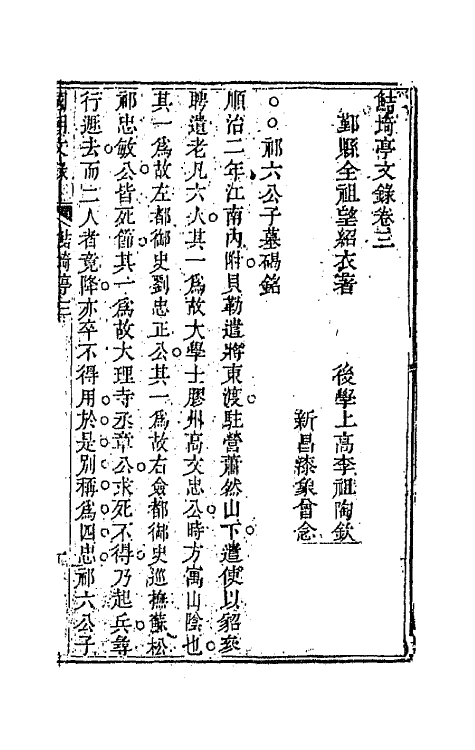 鮚埼亭文錄卷三
鄞縣全祖望紹衣著
後學上高李祖陶欽
新昌漆象曾念
○○祁六公子墓碣銘
順治二年江南內附貝勒遣將東渡駐營蕭然山下遣使以貂參
聘遺老凡六人其一爲故大學士膠州高文忠公時方寓山陰也
其一爲故左都御史劉忠正公其一爲故右僉都御史巡撫蘇松
祁忠敏公皆死節其一爲故大理寺丞章公求死不得乃起兵尋
行遯去而二人者竟降亦卒不得用於是別稱爲四忠祁六公子
國朝文錄
鮚埼亭三